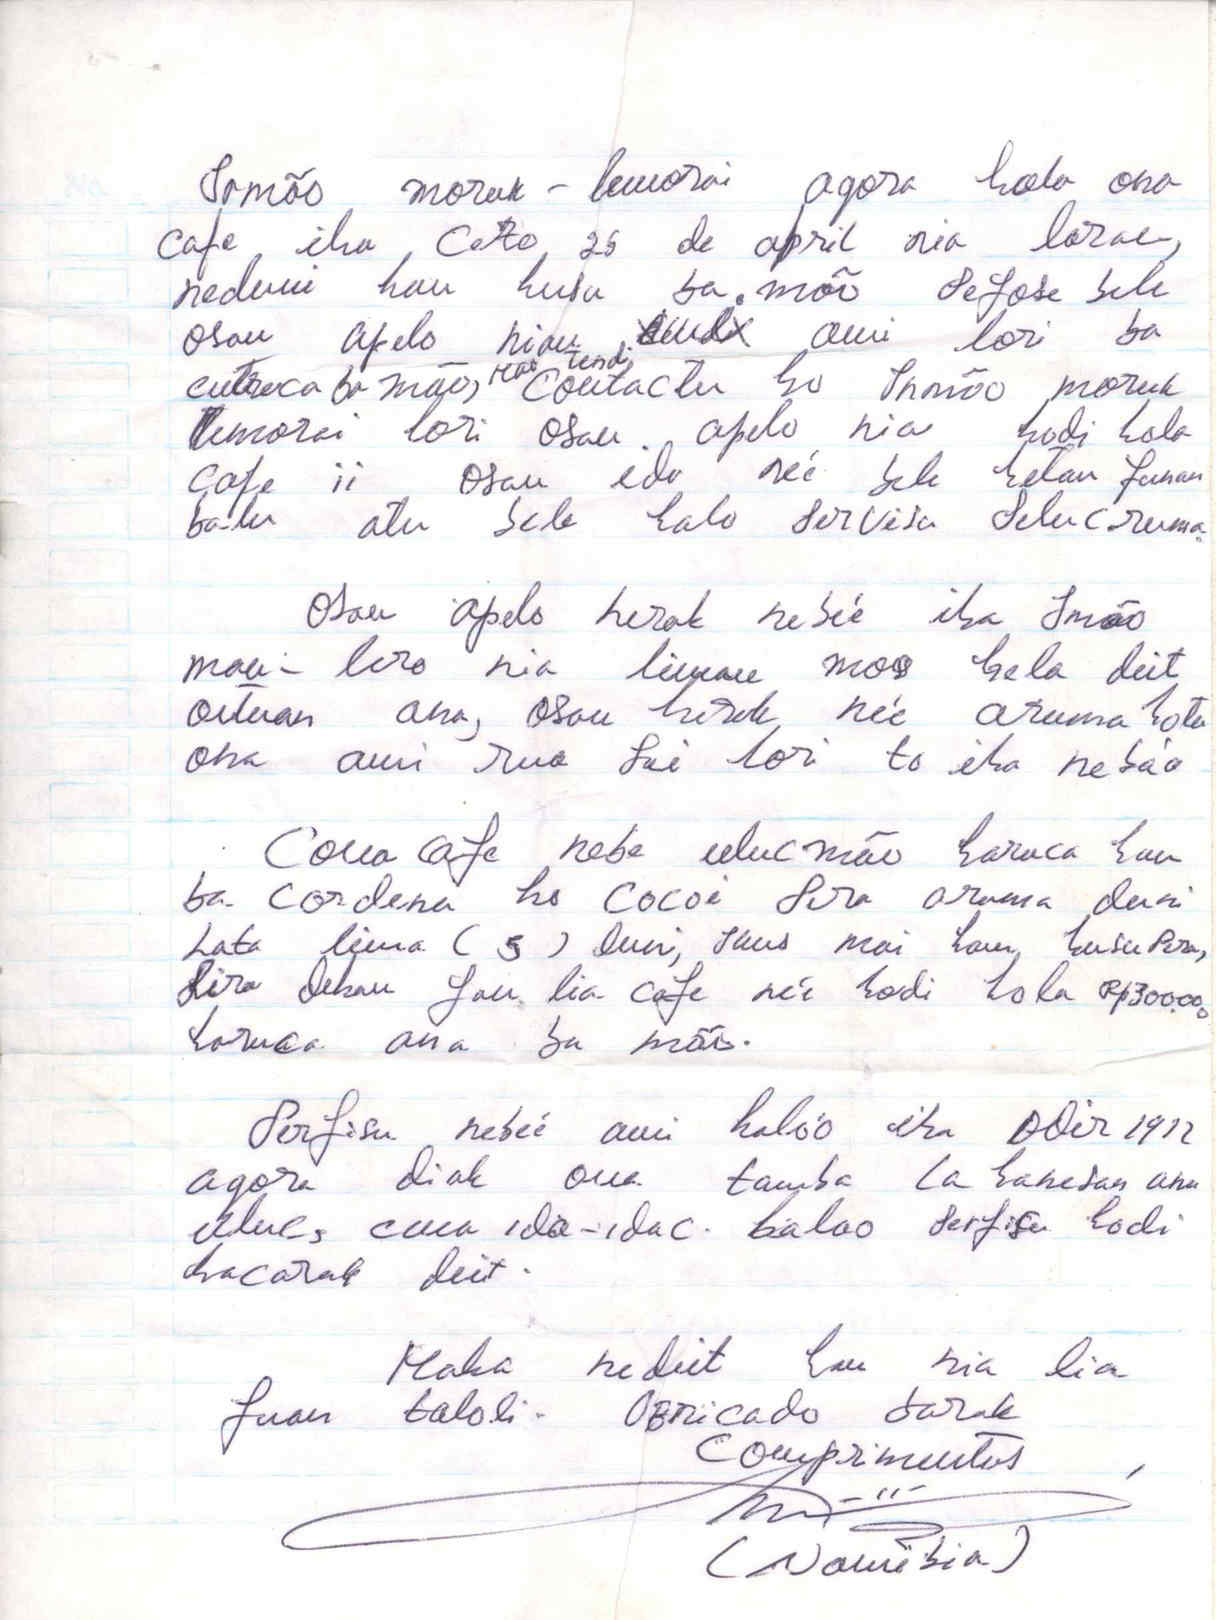 Inmão moruk - lemorai agora hola ona
cafe iha Ceto 25 de april nia laran,
neduni hau husu ba mão se fose bele
osan apelo nian ami lori ba
entreca ba mão, Mao tenqi Contactu ho Inmão moruk
lemorai lori osan apelo nia hodi hola
cafe ii osan ida neé bele hetan funan
ba-lu atu bele halo servisu seluc ruma.
Osan apelo herak nebeé iha Inmão
mau-lero nia liman mos hela deit
oituan ona, osan herak neé aruma hotu
ona ami rua sei lori to iha nebáa
Cona cafe nebe uluc mão haruca hau
ba cordena ho Cocoi sira aruma duni
hata lima (5) duni, mai hau husu sira,
sira dehan fan tia cafe neé hodi hola Rp30000,
haruca ona ba mão.
Serfisu nebeé ami haló iha DDir 1912
agora diak ona tamba la hanesan ona
uluc, ema ida-idac halao serfisu hodi
hacarak deit.
Maka nedeit hau nia lia
fuan taloli. Obricado barak
Comprimentos
(Namibia)